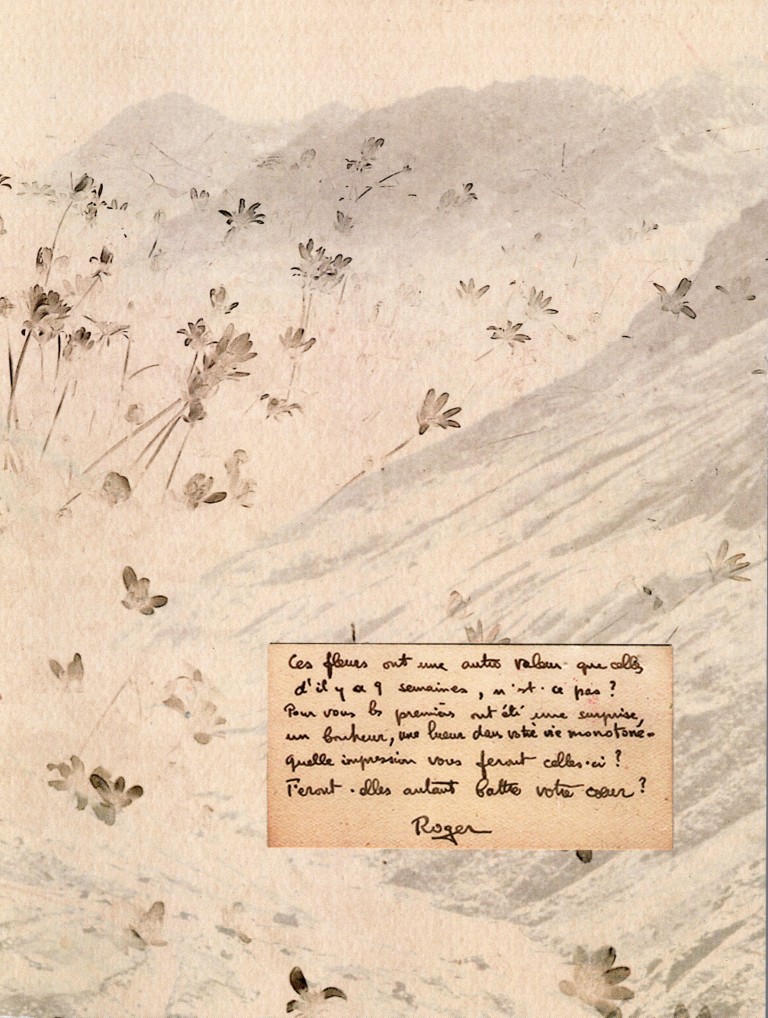 Ces fleurs ont une autre valeur que celles
d'il y a 9 semaines, n'est-ce pas ?
Pour vous les premières ont été une surprise,
un bonheur, une lueur dans votre vie monotone.
Quelle impression vous feront celles-ci ?
Feront-elles autant battre votre cœur ?
Roger